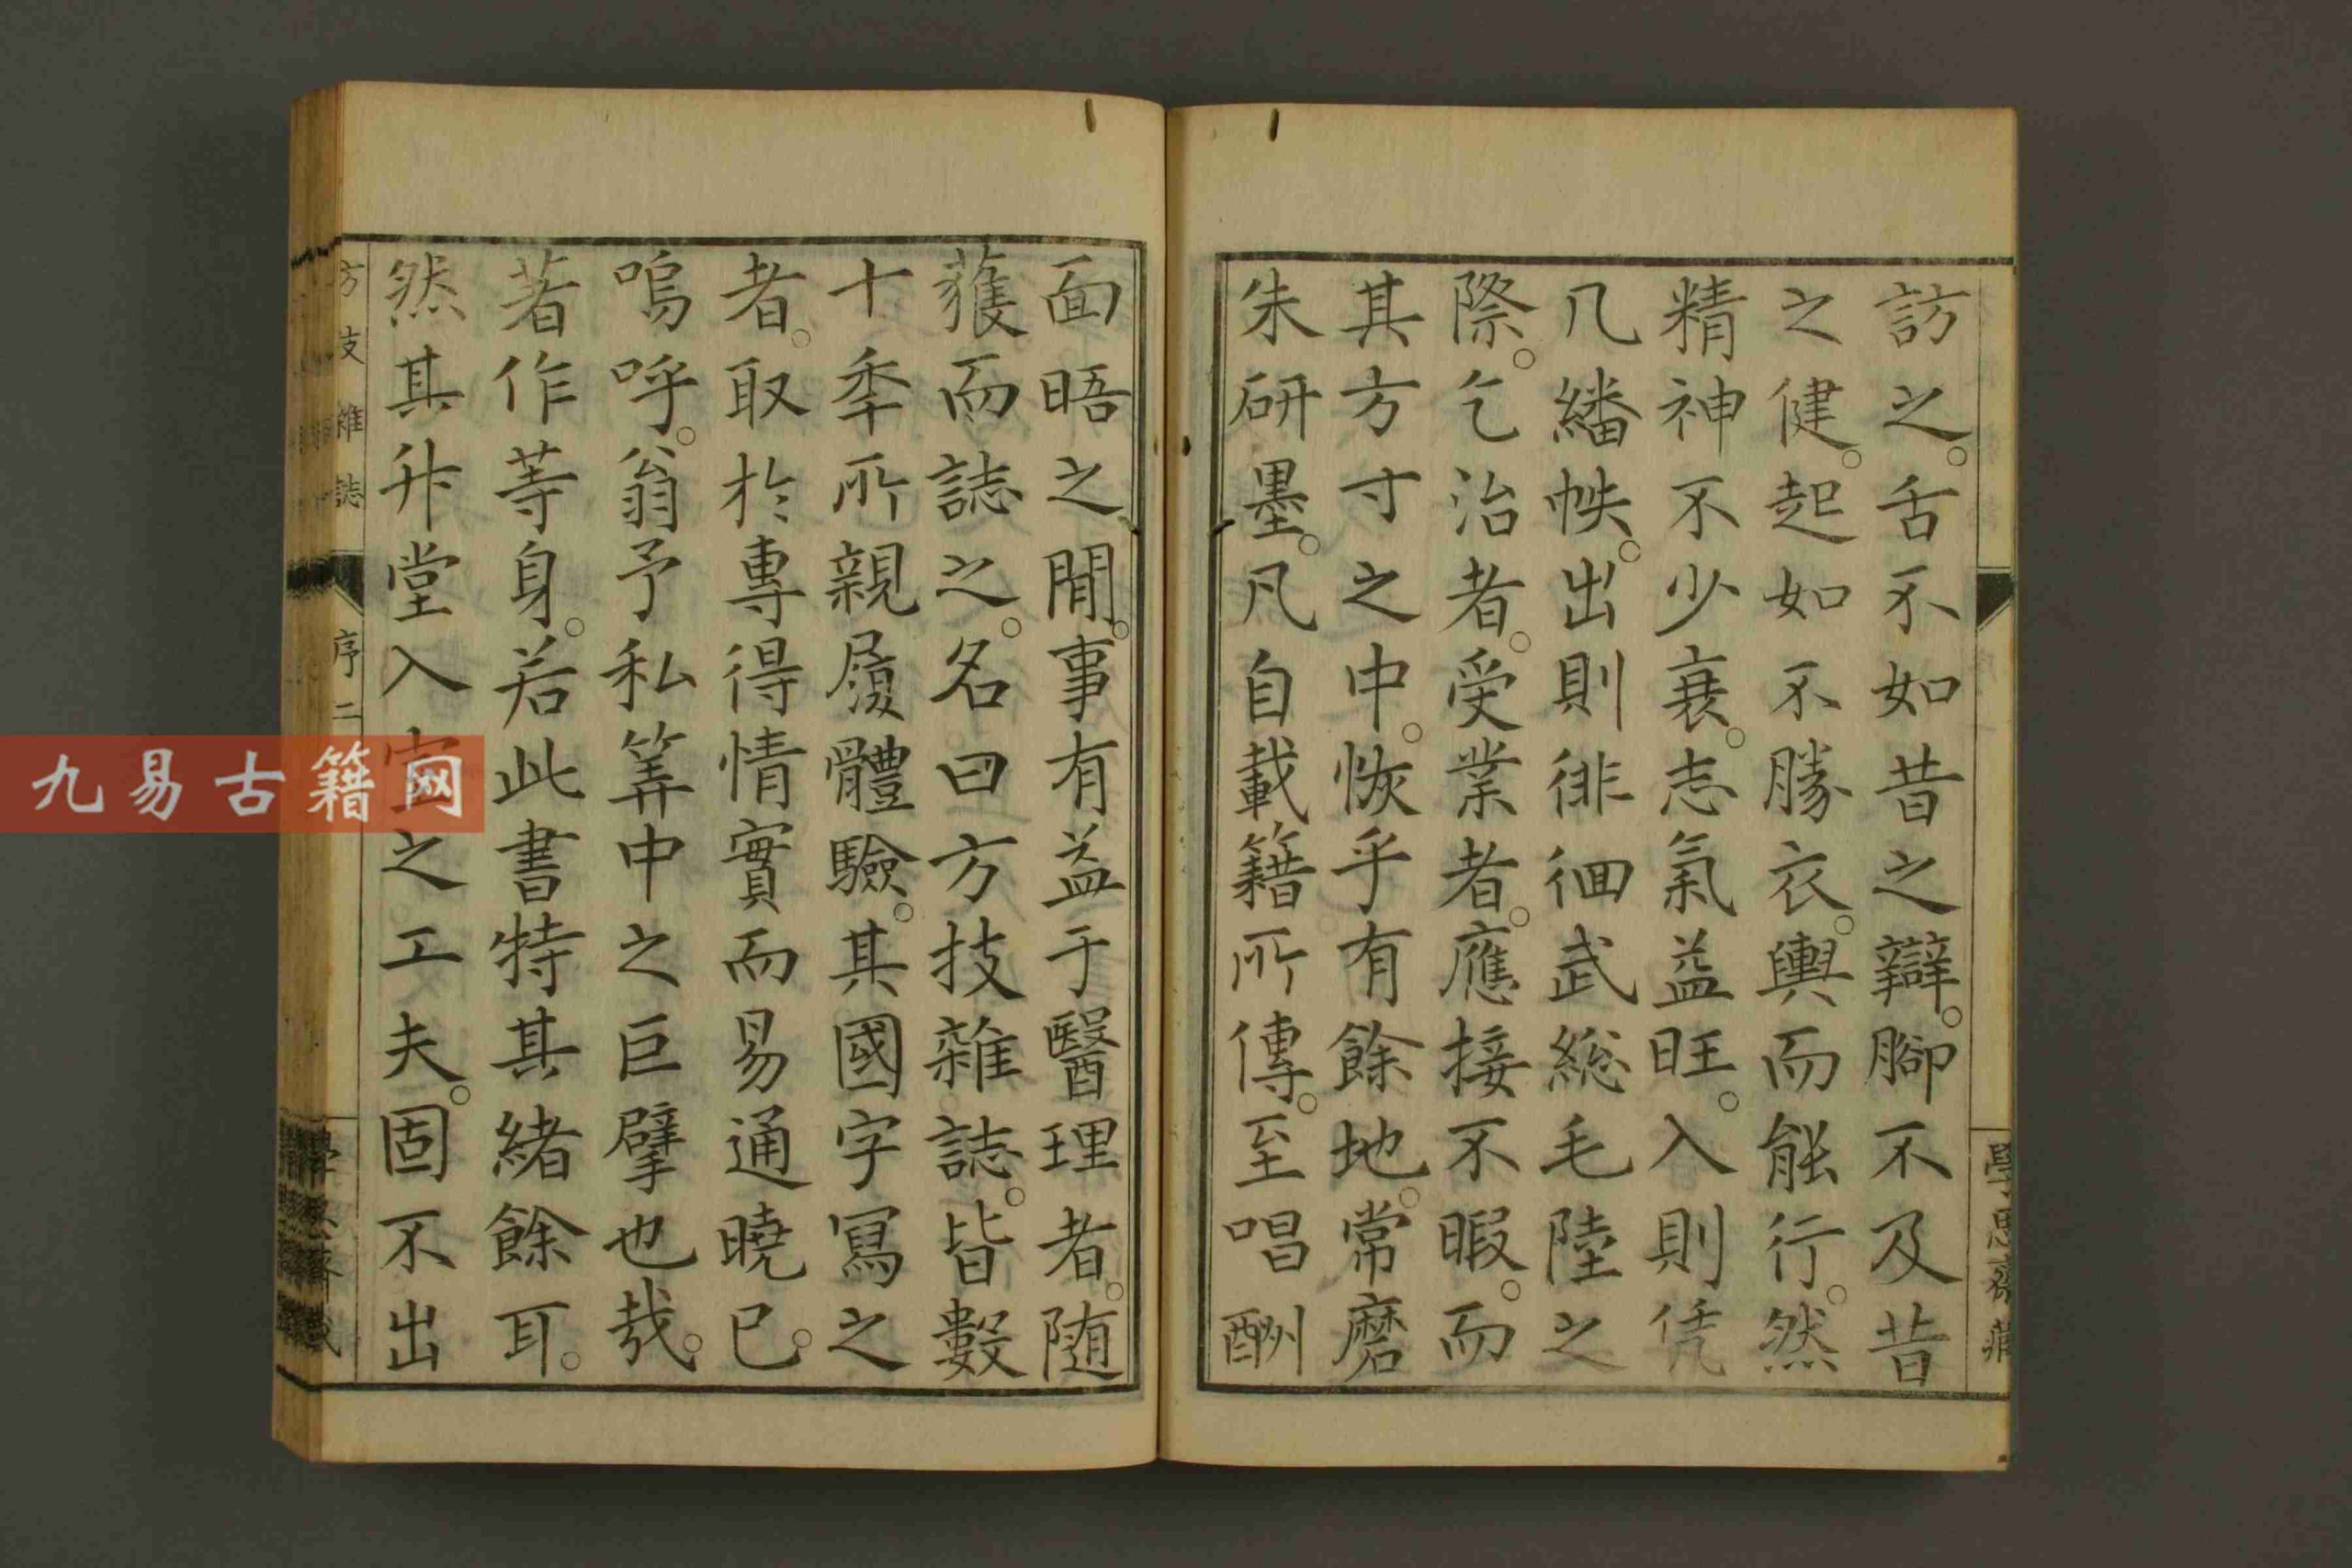 訪之。舌不如昔之辯。腳不及昔
之健。起如不勝衣。輿而能行。然
精神不少衰。志氣益旺。入則凭
几繙帙。出則徘徊武總毛陸之
際。乞治者。受業者。應接不暇。而
其方寸之中。恢乎有餘地。常磨
朱研墨。凡自載籍所傳。至唱酬
學思齋藏
面晤之閒。事有益于醫理者。随
蓑而誌之。名曰方技雜誌。皆數
十秊所親履體驗。其國字寫之
者。取於專得情實而易通曉已。
嗚呼。翁予私筭中之巨擘也哉。
著作等身。若此書特其緒餘耳。
然其升堂入室之工夫。固不出
方技雜誌
序二
九易古籍网